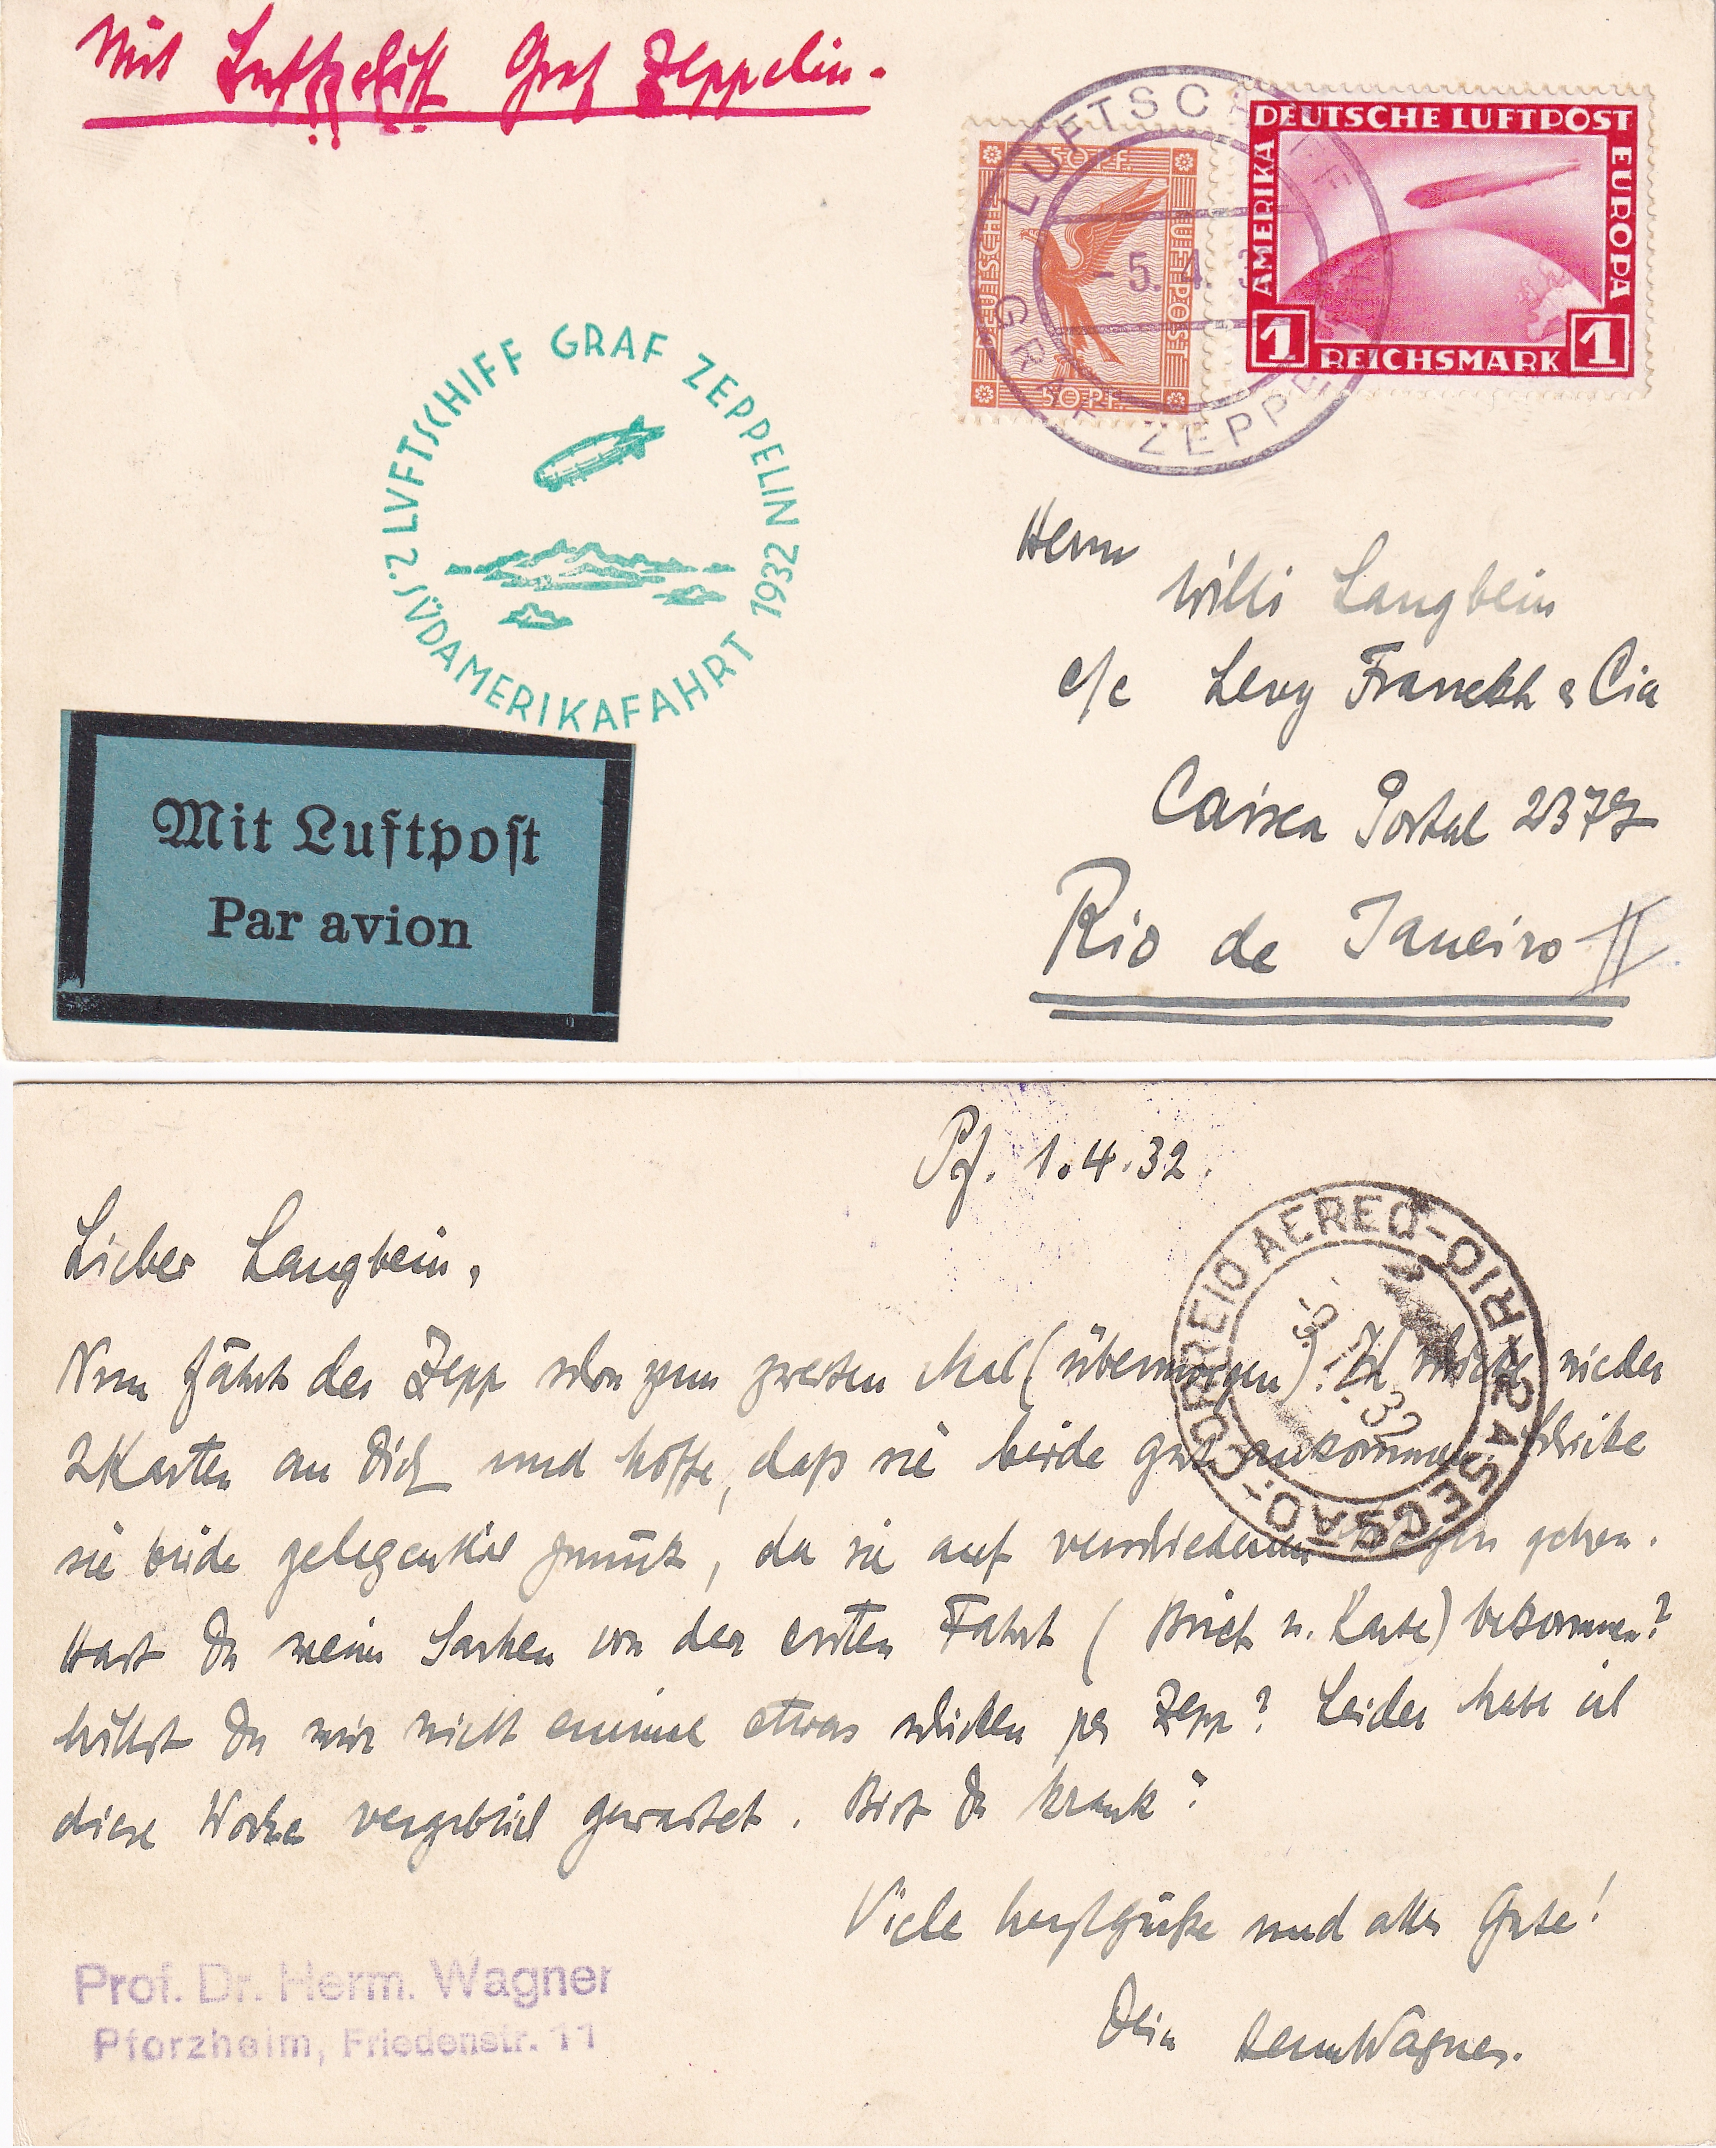 Mit Luftschiff Graf Zeppelin.
LUFTSCHIFF
GRAF ZEPPELIN
-5. 4. 3
50 PF.
DEUTSCHE LUFTPOST
50 PF.
DEUTSCHE LUFTPOST
AMERIKA EUROPA
1 REICHSMARK 1
LUFTSCHIFF GRAF ZEPPELIN 1932
2. SÜDAMERIKAFAHRT
Herrn
Willi Langbein
c/c Levy Franckh & Cia
Caixa Postal
Rio de Janeiro II
Mit Luftpost
Par avion
Pf. 1.4.32.
CORREIO AEREO - RIO - 2A SECSAO -
32
Lieber Langbein,
Nun fährt der Zepp schon zum zweiten Mal (übermorgen). Ich schicke wieder
2 Karten an Dich und hoffe, daß sie beide gut ankommen. Schicke
sie beide gelegentlich zurück, da sie auf verschiedenen Wegen gehen.
Hast Du meine Sachen von der ersten Fahrt (Brief u. Karte) bekommen?
Willst Du mir nicht einmal etwas schicken per Zepp? Leider habe ich
diese Woche vergeblich gewartet. Bist Du krank?
Viele herzl. Grüße und alles Gute!
Dein Herm Wagner.
Prof. Dr. Herm. Wagner
Pforzheim, Friedenstr. 11